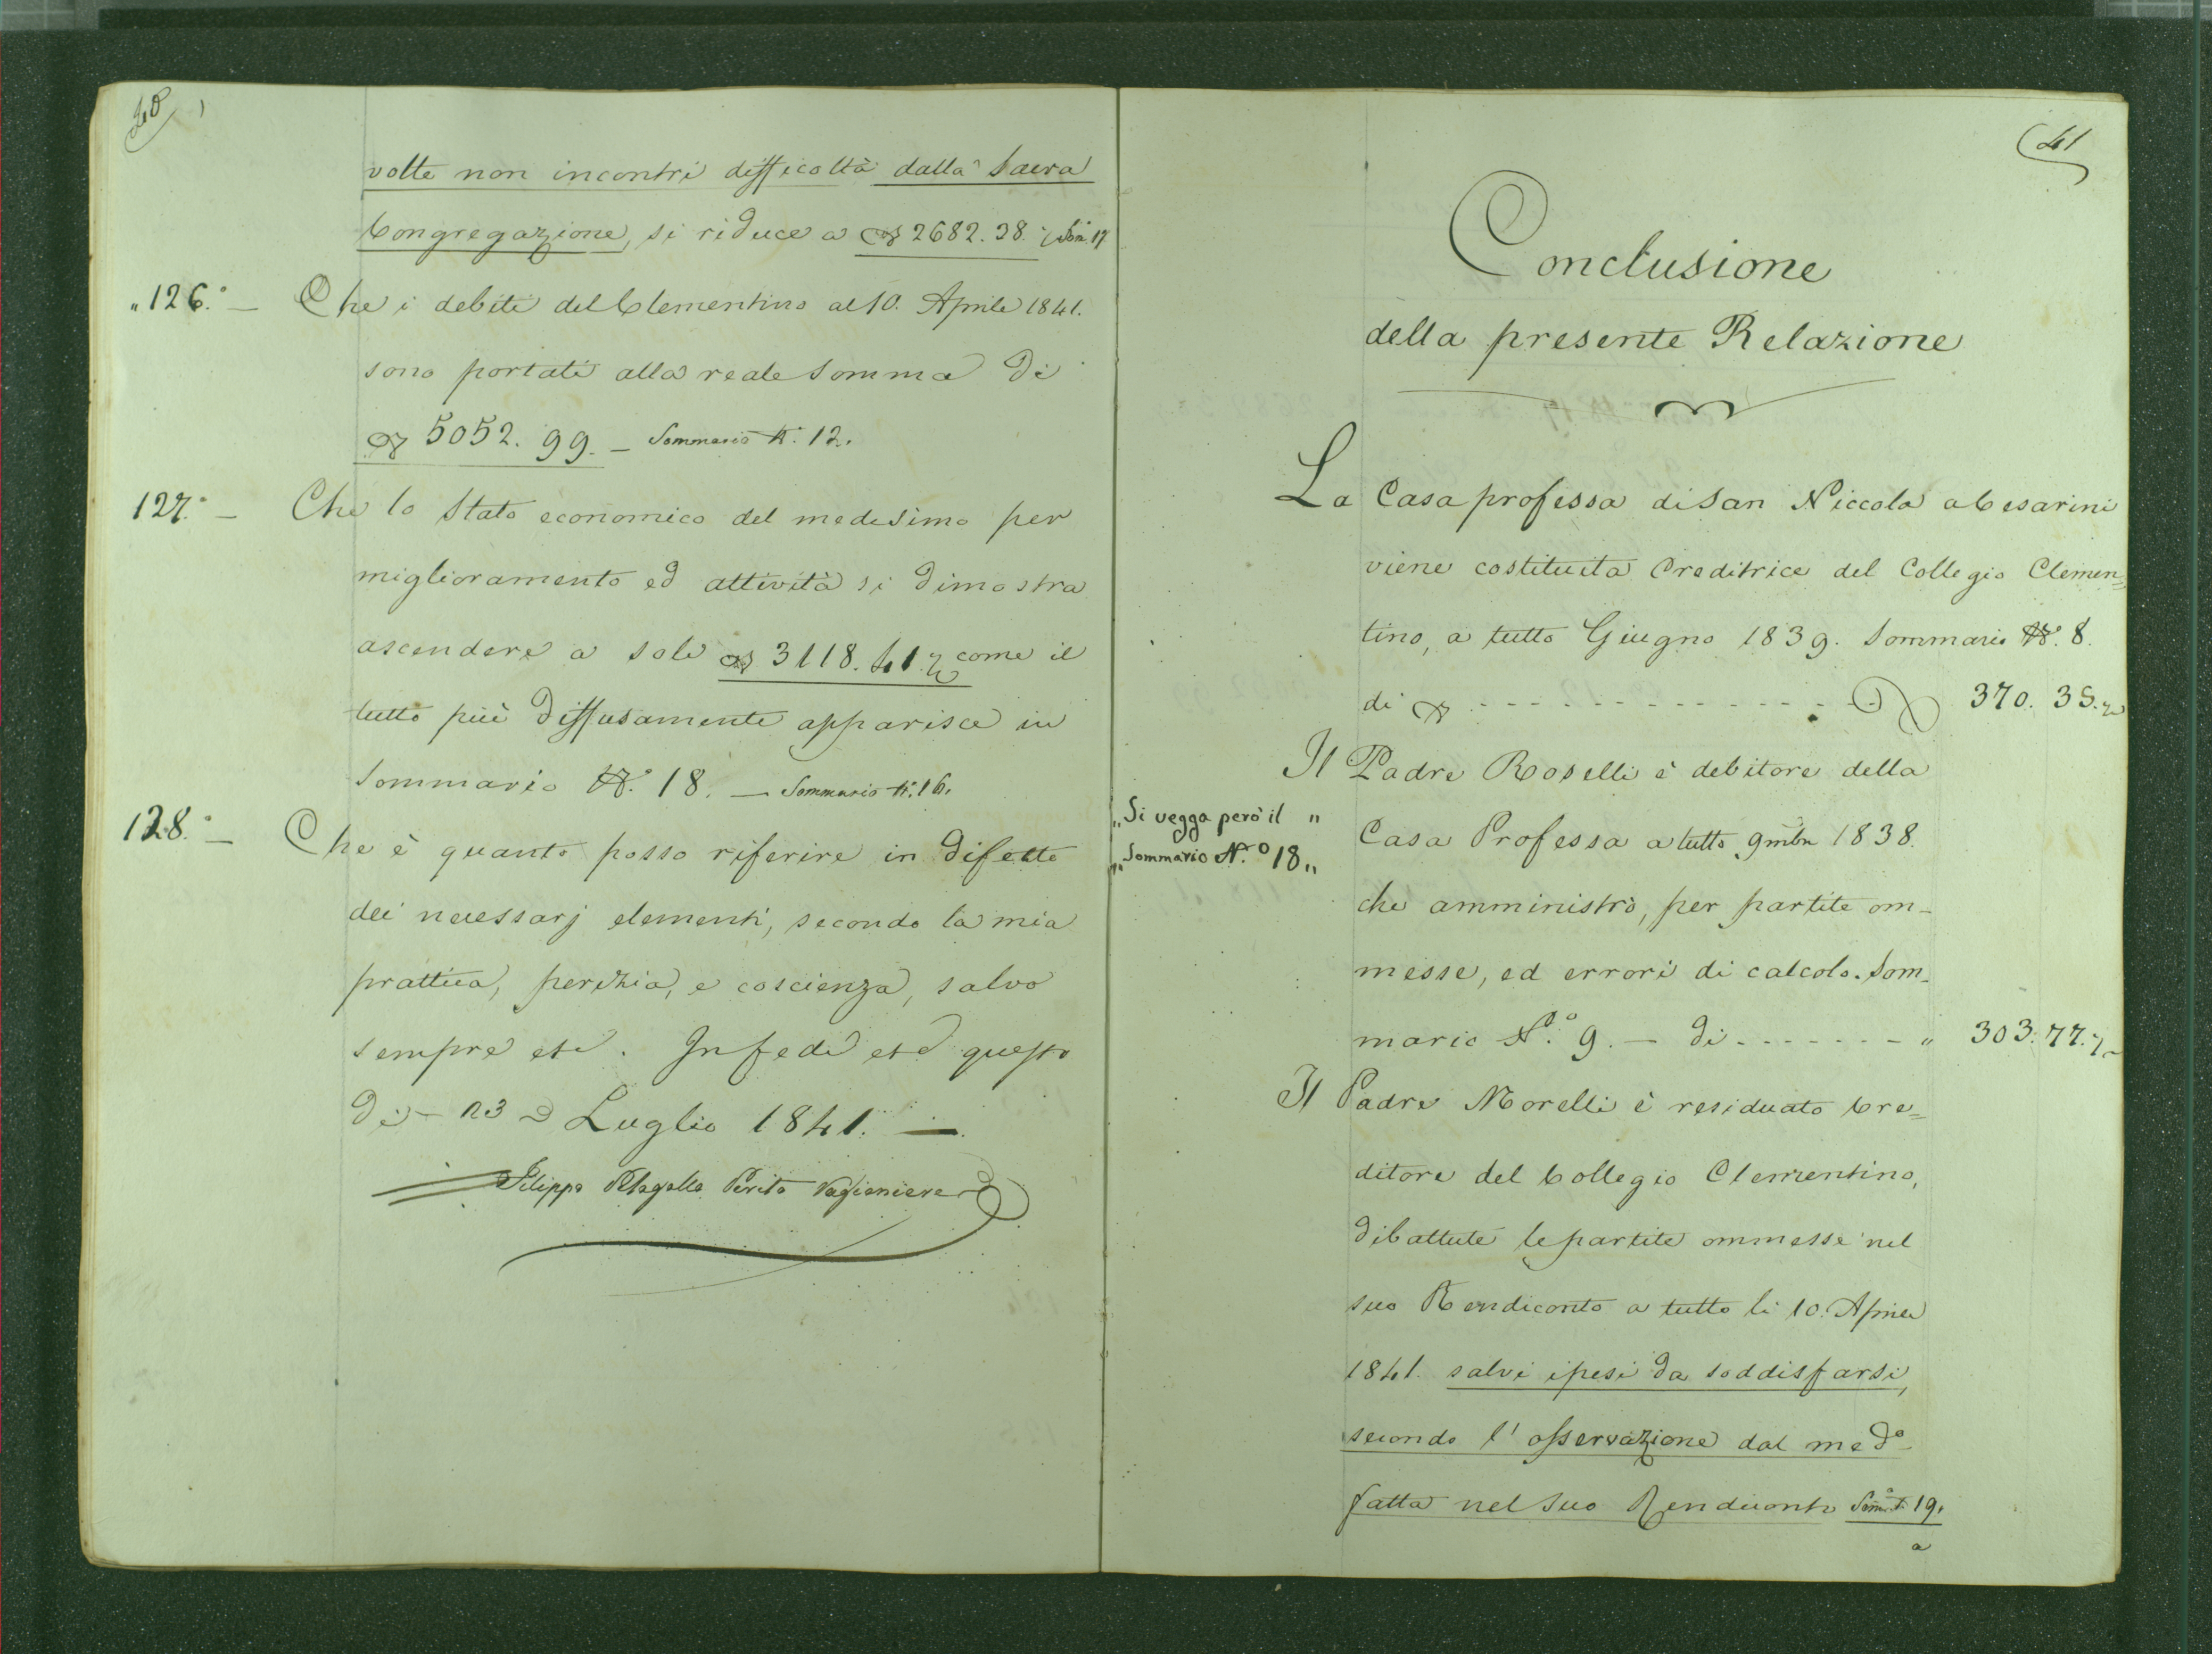 40
volte non incontri difficoltà dalla Sacra
Congregazione, si riduce a 2682. 38. ½ Som. 17
„126.° — Che i debiti del Clementino al 10. Aprile 1841.
sono portati alla reale Somma di
5052. 99. — Sommario N. 12.
127.° — Che lo Stato economico del medesimo per
miglioramento ed attività si dimostra
ascendere a soli 3118. 41. ½ come il
tutto più diffusamente apparisce in
Sommario N.° 18. — Sommario N. 16.
128.° — Che è quanto posso riferire in difetto
dei necessarj elementi, secondo la mia
prattica, perizia, e coscienza, salvo
sempre etc. In fede etc questo
dì 23 Luglio 1841. —
Filippo Perito Ragioniere
41
Conclusione
della presente Relazione
La Casa professa di San Niccola a Cesarini
viene costituita Creditrice del Collegio Clemen=
tino, a tutto Giugno 1839. Sommario N.° 8.
di 370. 35. ½
Il Padre Roselli è debitore della
„Si vegga però il „
„Sommario N.° 18„
Casa Professa a tutto 9mbre 1838.
che amministrò, per partite om-
messe, ed errori di calcolo. Som-
mario N.° 9. — di - - - - - - - „ 303. 77. ½
Il Padre Morelli è residuato Cre=
ditore del Collegio Clementino,
dibattute le partite ommesse nel
suo Rendiconto a tutto li 10. Aprile
1841. salvi i pesi da soddisfarsi,
secondo l'osservazione dal med.°
fatta nel suo Rendiconto Som. N. 19.
a